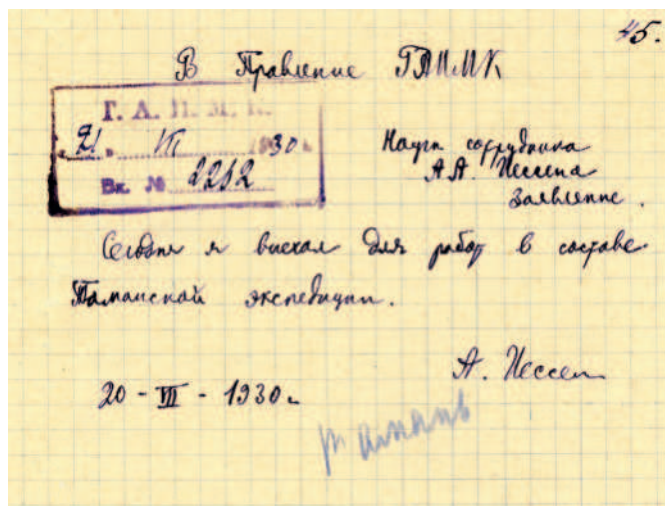 45.
В Правление ГАИМК
Г. А. И. М. К.
21 VII 1930 г.
Вх. № 2212
Научн. сотрудника
А. А. Иессена
Заявление.
Сегодня я выехал для работ в составе
Таманской экспедиции.
А. Иессен
20 - VII - 1930 г.
Тамань